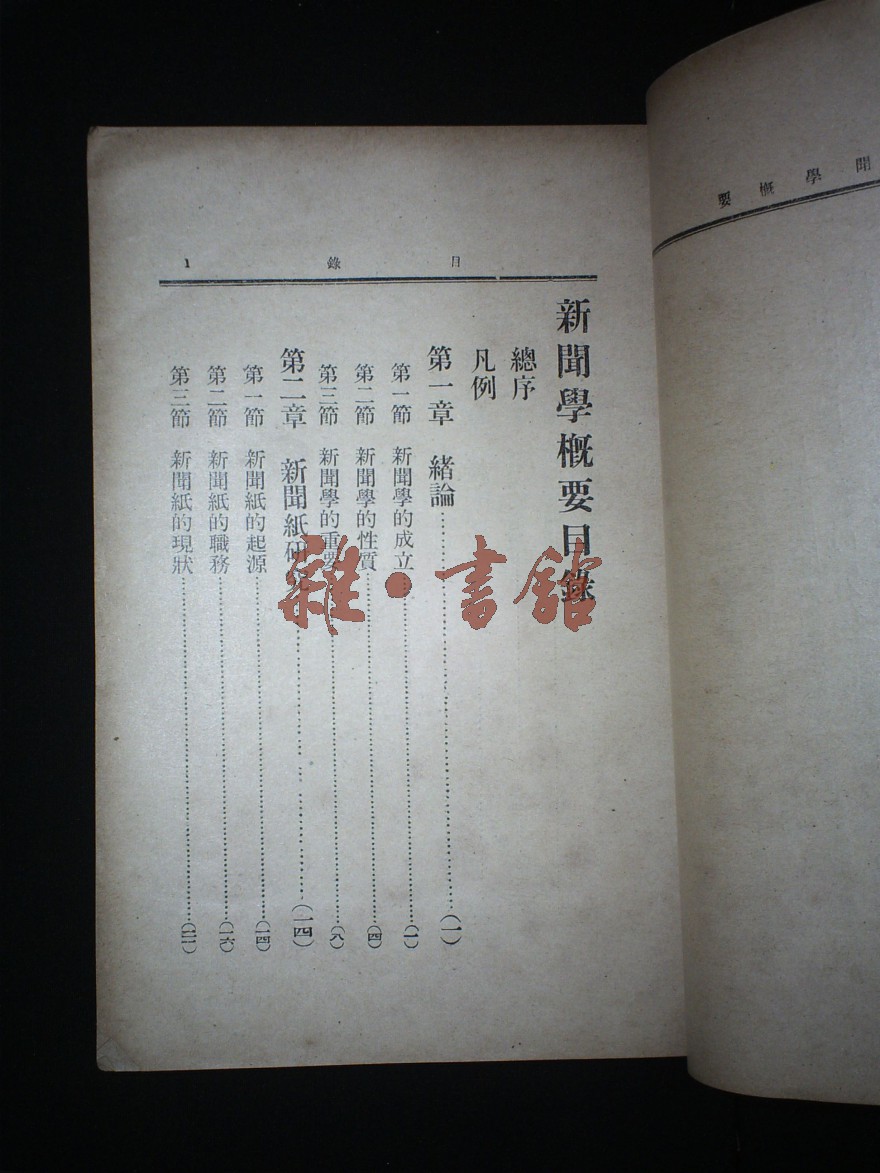 聞學概要
目錄 1
新聞學概要目錄
總序
凡例
第一章 緒論……(一)
第一節 新聞學的成立……(一)
第二節 新聞學的性質……(四)
第三節 新聞學的重要……(八)
第二章 新聞紙研究……(一四)
第一節 新聞紙的起源……(一四)
第二節 新聞紙的職務……(一六)
第三節 新聞紙的現狀……(二一)
雜·書館